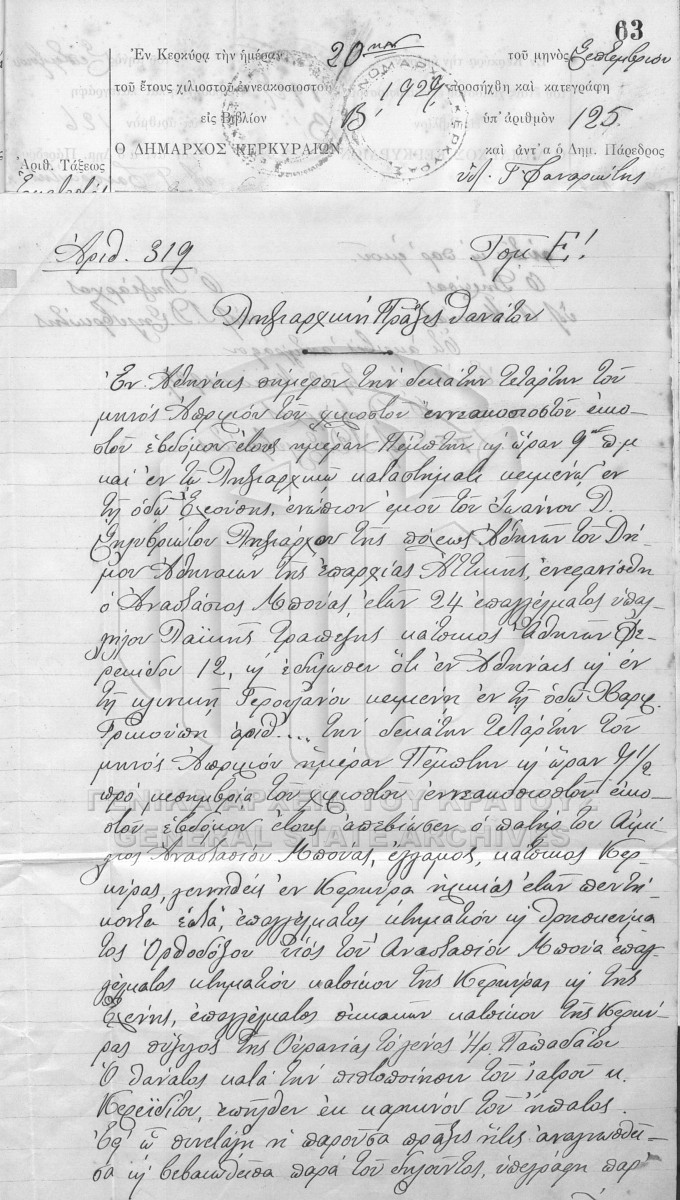 63
Ἐν Κερκύρᾳ τὴν ἡμέραν 20ην τοῦ μηνὸς Σεπτεμβρίου
τοῦ ἔτους χιλιοστοῦ ἐννεακοσιοστοῦ 1927 προσήχθη καὶ κατεγράφη
εἰς Βιβλίον Β' ὑπ' ἀριθμὸν 125
Ο ΔΗΜΑΡΧΟΣ ΚΕΡΚΥΡΑΙΩΝ καὶ ἀντ' α ὁ Δημ. Πάρεδρος
Ἀριθ. Τάξεως
ΝΟΜΑΡΧ ΚΕΡΚΥΡΑΣ
Ἀριθ. 319 Τομ Ε!
Ληξιαρχική Πρᾶξις θανάτου
Ἐν Ἀθήναις σήμερον τήν δεκάτην τετάρτην τοῦ
μηνός Ἀπριλίου τοῦ χιλιοστοῦ ἐννεακοσιοστοῦ εἰκο-
στοῦ ἑβδόμου ἔτους ἡμέραν Πέμπτην ϗ ὥραν 9ην π.μ.
καί ἐν τῷ Ληξιαρχικῷ καταστήματι κειμένῳ ἐν
τῇ ὁδῷ ἐνώπιον ἐμοῦ τοῦ Ἰωάννου Δ.
Σηλυβριώτου Ληξιάρχου τῆς πόλεως Ἀθηνῶν τοῦ Δή-
μου Ἀθηναίων τῆς ἐπαρχίας Ἀττικῆς, ἐνεφανίσθη
ὁ Ἀναστάσιος Μπούας, ἐτῶν 24 ἐπαγγέλματος ὑπαλ-
λήλου Λαϊκῆς Τραπέζης κάτοικος Ἀθηνῶν Φε-
ρεκύδου 12, ϗ ἐδήλωσεν ὅτι ἐν Ἀθήναις ϗ ἐν
τῇ κλινικῇ Γερουλάνου κειμένῃ ἐν τῇ ὁδῷ Χαριλ.
Τρικούπη ἀριθ.... τήν δεκάτην τετάρτην τοῦ
μηνός Ἀπριλίου ἡμέραν Πέμπτην ϗ ὥραν 7 1/2
πρό μεσημβρίας τοῦ χιλιοστοῦ ἐννεακοσιοστοῦ εἰκο-
ΓΕΝΙΚΑ ΑΡΧΕΙΑ ΤΟΥ ΚΡΑΤΟΥΣ
στοῦ ἑβδόμου ἔτους ἀπεβίωσεν ὁ πατήρ του Αἰμί-
GENERAL STATE ARCHIVES
λιος Ἀναστασίου Μπούας, ἔγγαμος, κάτοικος Κερ-
κύρας, γεννηθείς ἐν Κερκύρᾳ ἡλικίας ἐτῶν πεντή-
κοντα ἑπτά, ἐπαγγέλματος κτηματίου ϗ θρησκεύμα
τος Ὀρθοδόξου υἱός τοῦ Ἀναστασίου Μπούα ἐπαγ-
γέλματος κτηματίου κατοίκου τῆς Κερκύρας ϗ τῆς
Ἑλένης, ἐπαγγέλματος οἰκιακῶν κατοίκου τῆς Κερκύ-
ρας σύζυγος τῆς Οὐρανίας τό γένος Ἡρ. Παπαδάτου
Ὁ θάνατος κατά τήν πιστοποίησιν τοῦ ἰατροῦ κ.
ἐπῆλθεν ἐκ καρκίνου τοῦ ἥπατος.
Ἐφ' ᾧ συνετάγη ἡ παροῦσα πρᾶξις ἥτις ἀναγνωσθεῖ-
σα ϗ βεβαιωθεῖσα παρά τοῦ δηλοῦντος, ὑπεγράφη παρ'